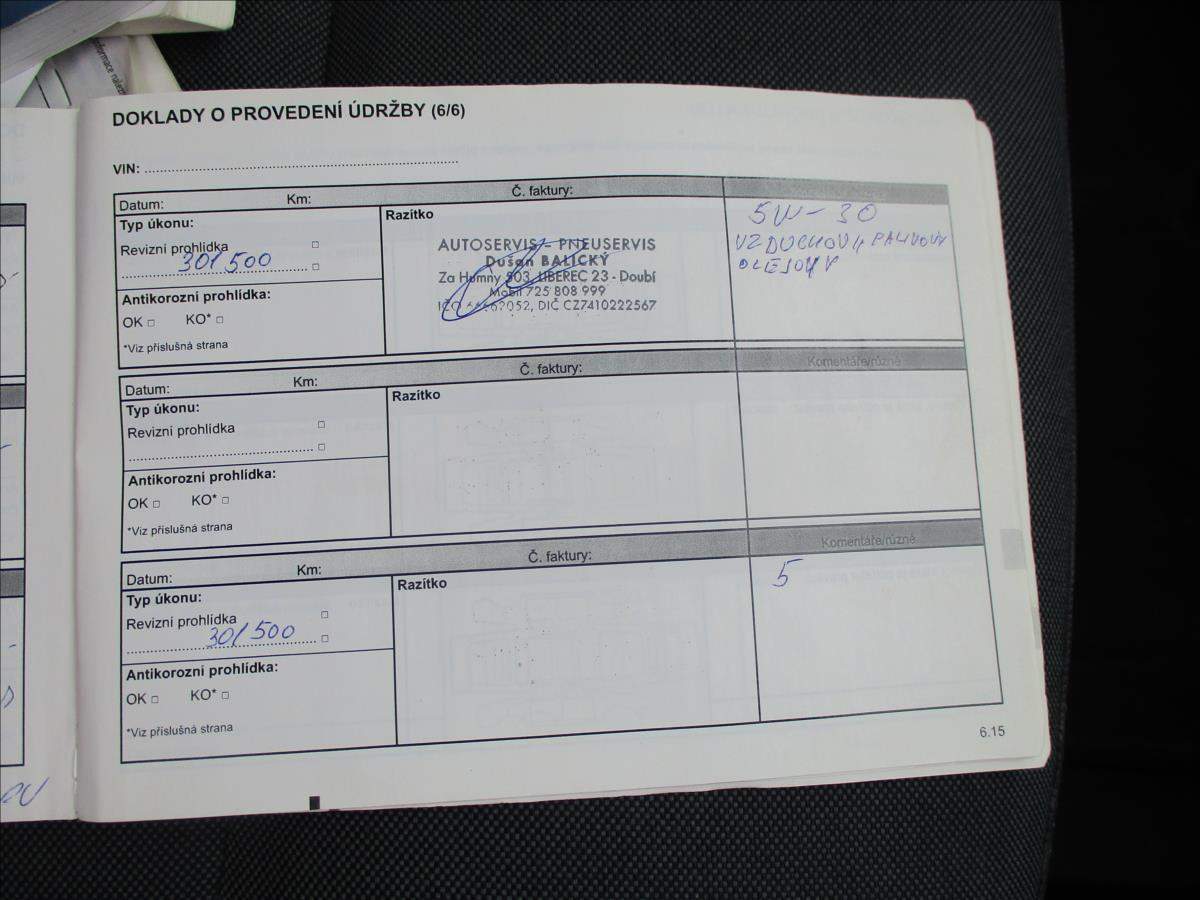 informace nalez
DOKLADY O PROVEDENÍ ÚDRŽBY (6/6)
VIN:
Datum: Km: Č. faktury:
Typ úkonu:
Revizní prohlídka
301500
Antikorozní prohlídka:
OK KO*
*Viz příslušná strana
Razítko
AUTOSERVIS - PNEUSERVIS
Dušan BALICKÝ
Za Humny 503, LIBEREC 23 - Doubí
Mobil 725 808 999
IČO 052, DIČ CZ7410222567
5W-30
VZDUCHOVÝ PALIVOVÝ
OLEJOVÝ
Datum: Km: Č. faktury: Komentáře/různé
Typ úkonu:
Revizní prohlídka
Antikorozní prohlídka:
OK KO*
*Viz příslušná strana
Razítko
Datum: Km: Č. faktury: Komentáře/různé
Typ úkonu:
Revizní prohlídka
301500
Antikorozní prohlídka:
OK KO*
*Viz příslušná strana
Razítko
5
6.15